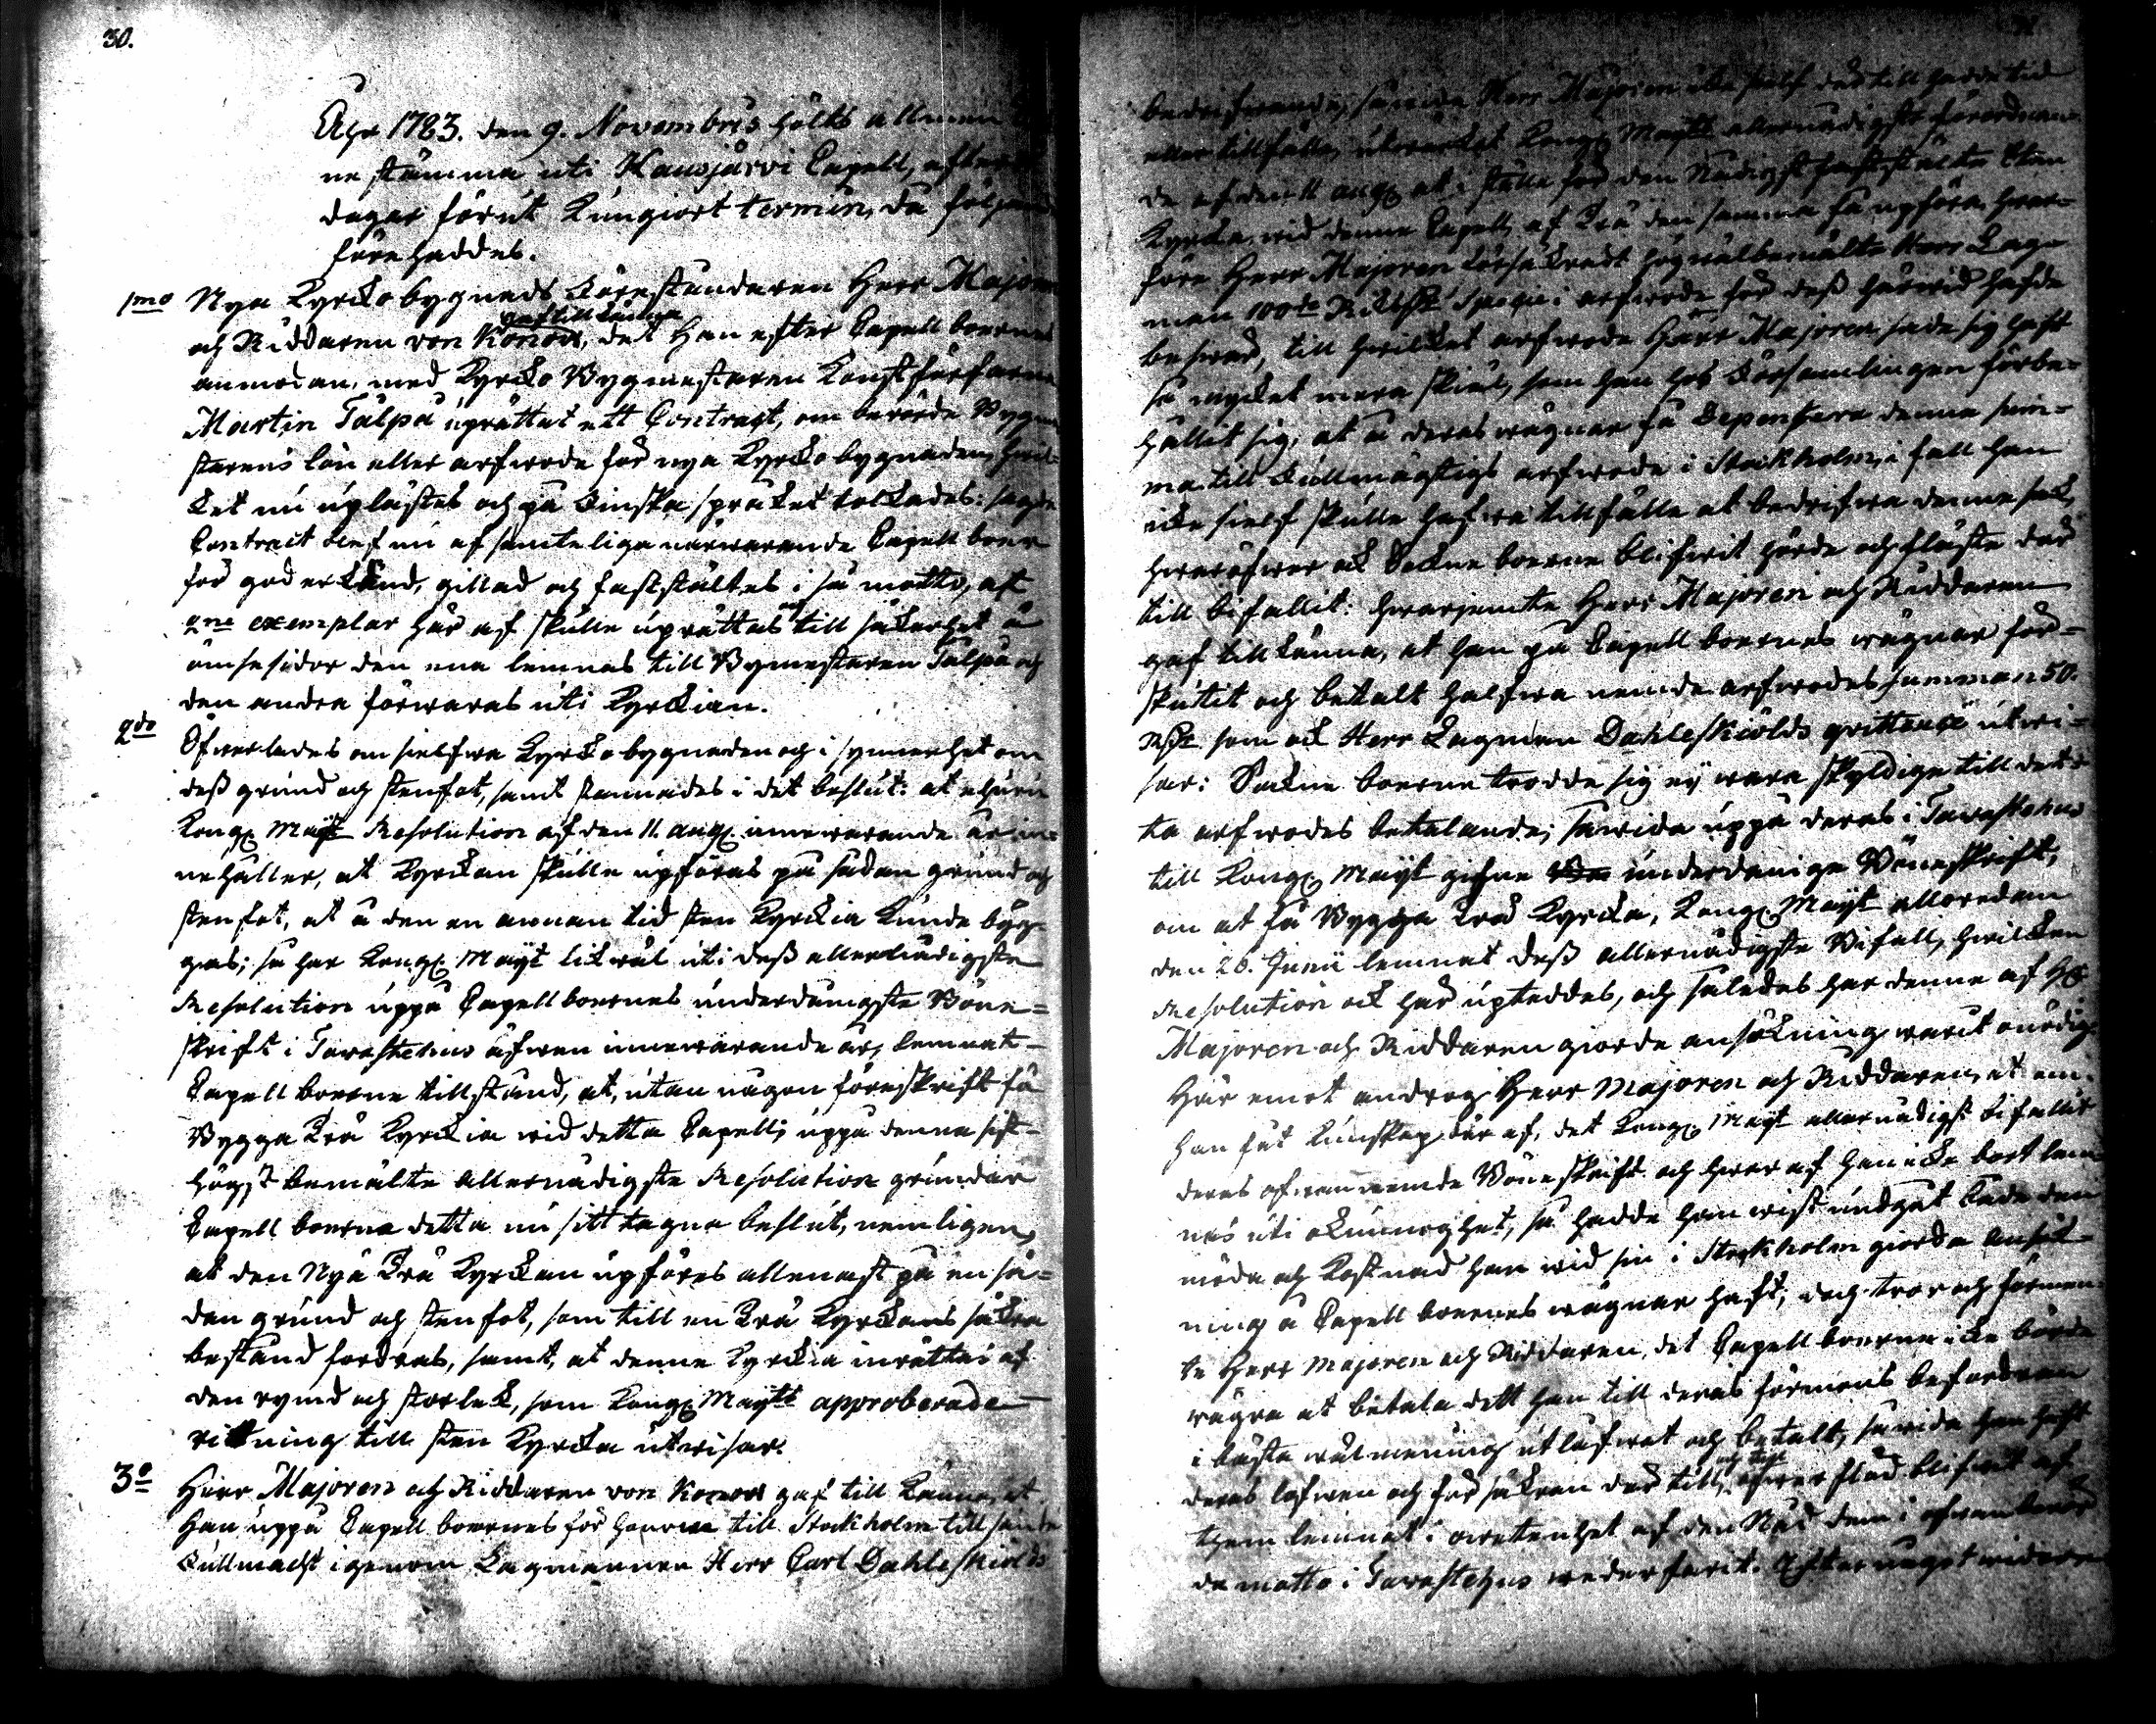 30.
Åhr 1783. den 9. Novembris hölts allmän
ne stämma uti Hausjärvi Capell, efter
dagar förut kungiort termin, då följande
förehaddes.
1mo Nya Kyrcko bygnads Förestandaren Herr Majoren
och Riddaren von Konow gaf tillkänna, det Han efter Capell boernes
anmodan, med Kyrcko Bygmestaren Konstförfarne
Martin Tålpå uprättat ett Contract, om berörde Bygme
starens lön eller arfwode för nya Kyrcko bygnaden, hwil-
ket nu uplästes och på Finska språket tolkades: sagde
Contract blef nu af samteliga närwarande Capell boer
för god erkänd, gillad och faststältes i så motto, at
2ne exemplar här af skulle uprättas och till säkerhet å
ömse sidor den ena lemnas till Bymestaren Tålpå och
den andra förwaras uti Kyrckian.
2do Öfwerlades om sielfwa Kyrcko bygnaden och i synnerhet om
dess grund och stenfot, samt stannades i det beslut: at ehuru
Kongl. Mayts Resolution af den 11. aug. innewarande år in-
nehåller, at Kyrckan skulle upföras på sådan grund och
stenfot, at å den en annan tid sten Kyrckia kunde byg-
gas; så har Kongl. Mayt likwäl uti dess allernådigste
Resolution uppå Capellboernes underdånigste Böne-
skrift i Tawastehus äfwen innewarande år, lemnat
Capell boerne tillstånd, at, utan någon föreskrift få
Bygga Trä Kyrckia wid detta Capell; uppå denna sist-
högst bemälte allernådigste Resolution grundar
Capell boerna detta nu sitt tagna beslut, nemligen,
at den Nya Trä Kyrckan upföres allenast på en så-
dan grund och stenfot, som till en Trä Kyrckans säkra
bestånd fordras, samt, at denne Kyrckia inrättas af
den rymd och storlek, som Kongl. Mayts approberade
rittning till sten Kyrcka utwisar.
3o Herr Majoren och Riddaren von Konow gaf till känna, at
Han uppå Capell boernes för honom till Stockholm till sände
Fullmacht igenom Lagmannen Herr Carl Dahleskiölds
bedrifwande, sawida Herr Majoren icke sielf där till hade tid
eller tillfälle, utwärkat Kongl. Mayts allernådigste förordnan-
de af den 11 aug. at i stället för den Nådigst faststälte Sten
Kyrcka, wid denne Capell, af Trä den samma få upföra, hwar-
före Herr Majoren försäkradt högwälbemälte Herr Lag-
man 100de Riksdr Specie i arfwode för dess härwid hafde
beswär, till hwilket arfwode Herr Majoren sade sig haft
så mycket mera skiäl, som han hos Församlingen förbe-
hållit sig, at å deras wägnar få Depensera denna sum-
ma till Fullmägtigs arfwode i Stockholm, i fall han
icke sielf skulle hafwa tillfälle at bedrifwa denne sak,
hwaröfwer ock Sockne boerne blifwit hörde och fläste där
till bifallit: hwarjemte Herr Majoren och Riddaren
gaf till känna, at han på Capell boernes wägnar för-
skutit och betalt halfwa nemde arfwodes summan 50.
Rdr som ock Herr Lagman Dahleskiölds qvittence utwi-
sar: Sockne boerne trodde sig ej wara skyldige till det-
ta arfwodes betalande; sawida uppå deras i Tawastehus
till Kongl. Mayt gifne underdånige Böneskrift,
om at få Bygga Träd Kyrcka, Kongl. Mayt alloredan
den 26. Junii lemnat dess allernådigste Bifall, hwilken
Resolution ock här upteddes, och således har denne af Hr
Majoren och Riddaren giorde ansökning warit onödig.
Här emot androg Herr Majoren och Riddaren, at om
han fåt kunskap där af, det Kongl. Mayt allernådigst bifallit
deras ofwannemde Böneskrift och hwar af han icke bort lem-
nas uti okunnoghet, så hadde han wist undgåt både den
möda och kostnad han wid sin i Stockholm giorda ansök-
ning å Capell boernes wägnar haft; doch tror och förmen-
te Herr Majoren och Riddaren, det Capell boerne icke borde
wägra at betala dett han till deras förmons befordran
i bästa wälmening utlofwat och betalt, sawida han haft
deras lofwen och försäkran där till, och ofwerflöd blifwit af
them lemnat i owetenhet af den Nåd dem i ofwanberör-
de motto i Tawastehus wederfarit. Efter något widare